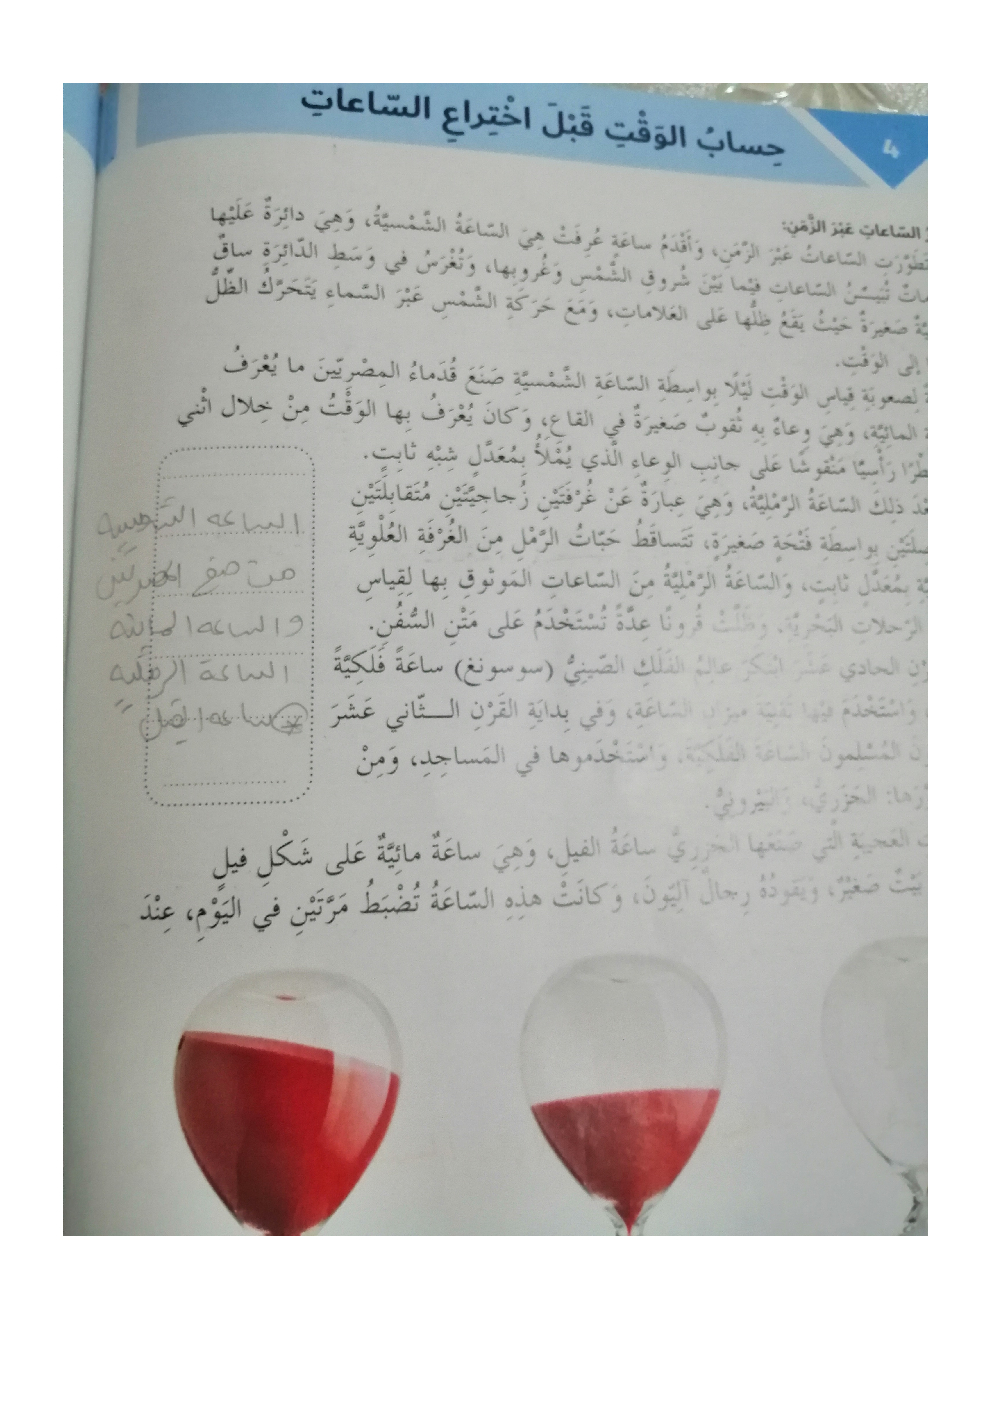 4
حِسابُ الوَقْتِ قَبْلَ اخْتِراعِ السّاعاتِ
السّاعاتِ عَبْرَ الزَّمَنِ:
تَطَوَّرَتِ السّاعاتُ عَبْرَ الزَّمَنِ، وَأَقْدَمُ ساعَةٍ عُرِفَتْ هِيَ السّاعَةُ الشَّمْسِيَّةُ، وَهِيَ دائِرَةٌ عَلَيْها
تُبَيِّنُ السّاعاتِ فيما بَيْنَ شُروقِ الشَّمْسِ وَغُروبِها، وَتُغْرَسُ في وَسَطِ الدّائِرَةِ ساقٌ
صَغيرَةٌ حَيْثُ يَقَعُ ظِلُّها عَلى العَلاماتِ، وَمَعَ حَرَكَةِ الشَّمْسِ عَبْرَ السَّماءِ يَتَحَرَّكُ الظِّلُّ
إلى الوَقْتِ.
لِصعوبَةِ قِياسِ الوَقْتِ لَيْلًا بِواسِطَةِ السّاعَةِ الشَّمْسِيَّةِ صَنَعَ قُدَماءُ المِصْرِيّينَ ما يُعْرَفُ
المائِيَّةِ، وَهِيَ وِعاءٌ بِهِ ثُقوبٌ صَغيرَةٌ في القاعِ، وَكانَ يُعْرَفُ بِها الوَقْتُ مِنْ خِلال اثْني
رَأْسِيًّا مَنْقوشًا عَلى جانِبِ الوِعاءِ الَّذي يُمْلَأُ بِمُعَدَّلٍ شِبْهِ ثابِتٍ.
ذلِكَ السّاعَةُ الرَّمْلِيَّةُ، وَهِيَ عِبارَةٌ عَنْ غُرْفَتَيْنِ زُجاجِيَّتَيْنِ مُتَقابِلَتَيْنِ
بِواسِطَةِ فَتْحَةٍ صَغيرَةٍ، تَتَساقَطُ حَبّاتُ الرَّمْلِ مِنَ الغُرْفَةِ العُلْوِيَّةِ
بِمُعَدَّلٍ ثابِتٍ، وَالسّاعَةُ الرَّمْلِيَّةُ مِنَ السّاعاتِ المَوْثوقِ بِها لِقِياسِ
الرَّحلاتِ البَحْرِيَّةِ. وَظَلَّتْ قُرونًا عِدَّةً تُسْتَخْدَمُ عَلى مَتْنِ السُّفُنِ.
الحادي عَشَرَ ابْتَكَرَ عالِمُ الفَلَكِ الصّينِيُّ (سوسونغ) ساعَةً فَلَكِيَّةً
وَاسْتَخْدَمَ فيها تَقْنِيَّةَ ميزانِ السّاعَةِ، وَفي بِدايَةِ القَرْنِ الـــثّاني عَشَرَ
المُسْلِمونَ السّاعَةَ الفَلَكِيَّةَ، وَاسْتَخْدَموها في المَساجِدِ، وَمِنْ
الجَزَرِيُّ، وَالبَيْرونِيُّ.
العَجيبَةِ الَّتي صَنَعَها الجَزَرِيُّ ساعَةُ الفيلِ، وَهِيَ ساعَةٌ مائِيَّةٌ عَلى شَكْلِ فيلٍ
بَيْتٌ صَغيْرٌ، وَيَقودُهُ رِجالٌ آلِيّونَ، وَكانَتْ هذِهِ السّاعَةُ تُضْبَطُ مَرَّتَيْنِ في اليَوْمِ، عِنْدَ
الساعه الشمسيه
من صنع المصريين
والساعه المائيه
الساعة الرمليه
ساعه الفيل